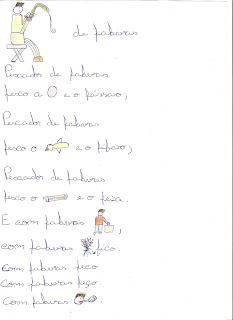 de palavras
Pescador de palavras
pesco a e o pássaro;
Pescador de palavras
pesco o e o pífaro;
Pescador de palavras
pesco o e o peixe.
E com palavras ,
com palavras fico.
Com palavras peco
Com palavras peço.
Com palavras .